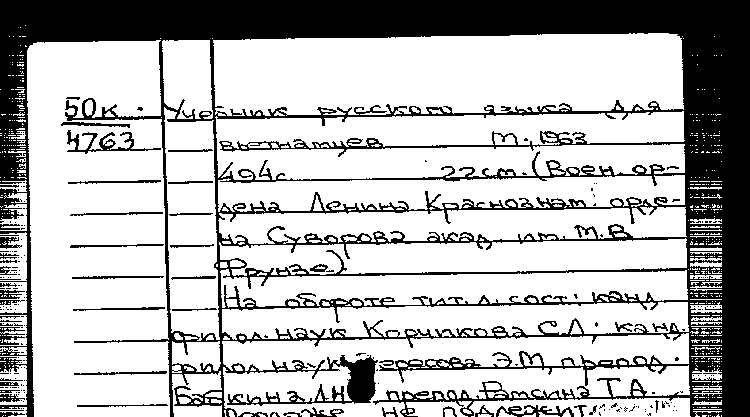 50к. Учебник русского языка для
4763 вьетнамцев М., 1963
494с. 22см. (Воен. ор-
дена Ленина Краснознам. орде-
на Суворова акад. им. М.В.
Фрунзе)
На обороте тит. л. сост.: канд.
филол. наук Корчикова С.Л; канд.
филол. наук Э.М, препод.
Бабкина Л.Н препод. Т.А.
не подлежит